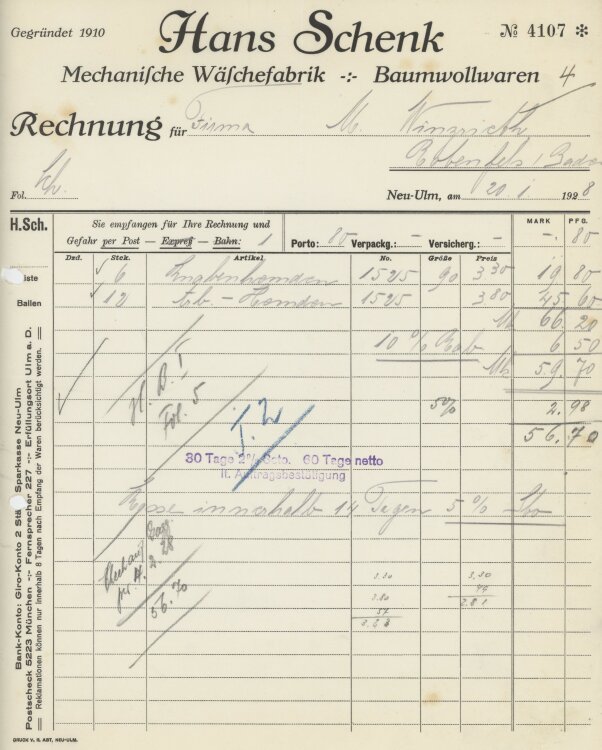 Gegründet 1910
Hans Schenk
№ 4107 ✻
Mechanische Wäschefabrik -:- Baumwollwaren 4
Rechnung für Firma M.
Fol. Sch.
Neu-Ulm, am 20. 1. 1928
H.Sch.
Sie empfangen für Ihre Rechnung und
Gefahr per Post — Expreß — Bahn: 1
Porto: 80 Verpackg.: - Versicherg.: -
MARK PFG.
-. 80
Dzd. Stck. Artikel No. Größe Preis
Kiste
Ballen
6 Knabenhemden 1525 90 3 30 19 80
12 Kb. - Hemden 1525 3 80 45 60
M 66. 20
10 % Rab 6 50
M 59. 70
5% 2. 98
56. 70
Fol. 5
30 Tage 2% Scto. 60 Tage netto
lt. Auftragsbestätigung
innerhalb 14 Tagen 5 %
4. 2. 28
56.70
3.30 3.30
3.80
57
Bank-Konto: Giro-Konto 2 Städt. Sparkasse Neu-Ulm
Postscheck 5223 München -:- Fernsprecher 227 -:- Erfüllungsort Ulm a. D.
Reklamationen können nur innerhalb 8 Tagen nach Empfang der Waren berücksichtigt werden.
DRUCK V. R. ABT, NEU-ULM.